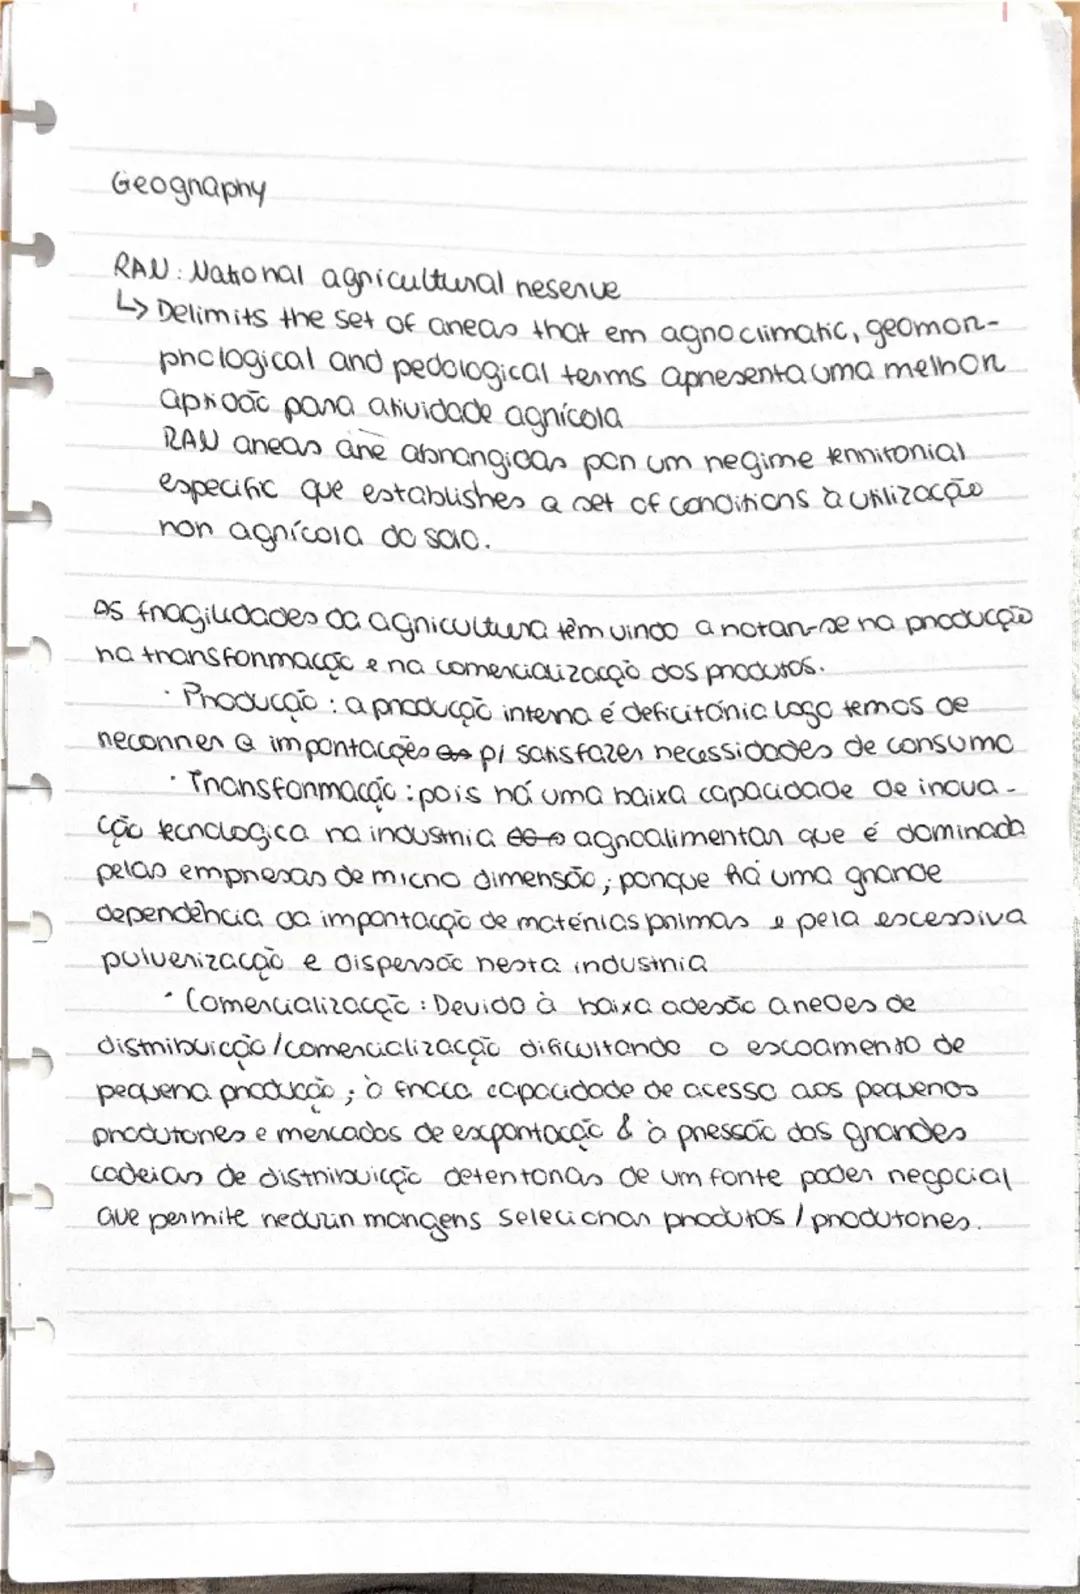 Geography
RAN: National agricultural reserve
↳ Delimits the set of areas that em agroclimatic, geomor-
phological and pedological terms apresenta uma melhor
aptidão para atividade agrícola
RAN areas are abrangidas por um regime territorial
especific que establishes a set of conditions à utilizacção
non agrícola do solo.
As fragilidades da agricultura têm vindo a notar-se na producção
na transformacção e na comercializacção dos produtos.
· Producão : a producção interna é deficitária logo temos de
recorrer a importacções as p/ satisfazer necessidades de consumo
· Transformacão : pois há uma baixa capacidade de inova-
ção tecnologica na industria do o agroalimentar que é dominada
pelas empresas de micro dimensão; porque há uma grande
dependência da importacção de matérias primas e pela escessiva
pulverizacção e dispersão nesta industria
· Comercializacção : Devido à baixa adesão a redes de
distribuicção/comercializacção dificultando o escoamento de
pequena producção ; à fraca capacidade de acesso aos pequenos
produtores e mercados de exportacção & à pressão das grandes
cadeias de distribuicção detentoras de um forte poder negocial
que permite reduzir margens selecionar produtos / produtores.